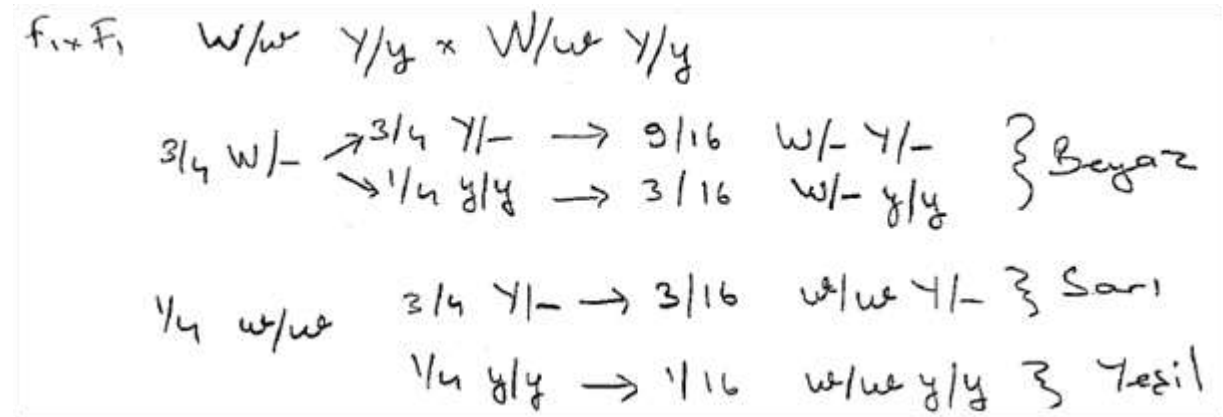 F₁ x F₁ W/w Y/y x W/w Y/y
3/4 W/- 3/4 Y/- → 9/16 W/- Y/- } Beyaz
1/4 y/y → 3/16 W/- y/y
1/4 w/w 3/4 Y/- → 3/16 w/w Y/- } Sarı
1/4 y/y → 1/16 w/w y/y } Yeşil